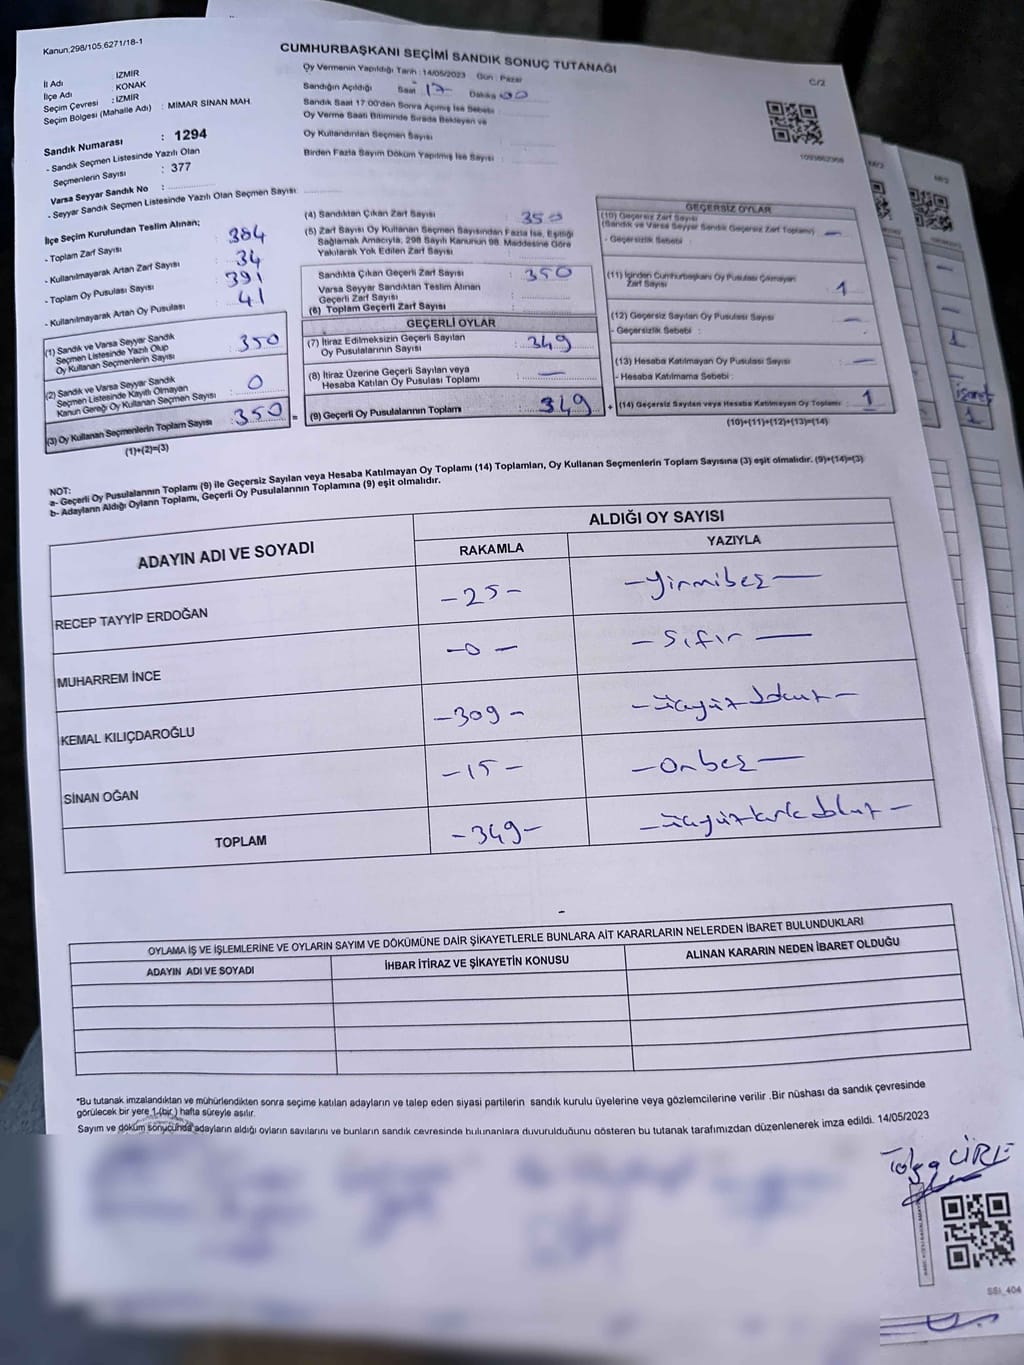 Kanun.298/105,6271/18-1
CUMHURBAŞKANI SEÇİMİ SANDIK SONUÇ TUTANAĞI
C/2
İl Adı : İZMİR
İlçe Adı : KONAK
Seçim Çevresi : İZMİR
Seçim Bölgesi (Mahalle Adı) : MİMAR SİNAN MAH.
Sandık Numarası : 1294
- Sandık Seçmen Listesinde Yazılı Olan
Seçmenlerin Sayısı : 377
Varsa Seyyar Sandık No :
- Seyyar Sandık Seçmen Listesinde Yazılı Olan Seçmen Sayısı
Oy Vermenin Yapıldığı Tarih : 14/05/2023 Gün : Pazar
Sandığın Açıldığı Saat 17 Dakika 00
Sandık Saat 17:00'den Sonra Açmış İse Sebebi :
Oy Verme Saati Bitiminde Sırada Bekleyen ve
Oy Kullandırılan Seçmen Sayısı
Birden Fazla Sayım Döküm Yapılmış İse Sayısı :
İlçe Seçim Kurulundan Teslim Alınan;
- Toplam Zarf Sayısı : 384
- Kullanılmayarak Artan Zarf Sayısı : 34
- Toplam Oy Pusulası Sayısı : 391
- Kullanılmayarak Artan Oy Pusulası : 41
(1) Sandık ve Varsa Seyyar Sandık
Seçmen Listesinde Yazılı Olup
Oy Kullanan Seçmenlerin Sayısı : 350
(2) Sandık ve Varsa Seyyar Sandık
Seçmen Listesinde Kayıtlı Olmayan
Kanun Gereği Oy Kullanan Seçmen Sayısı : 0
(3) Oy Kullanan Seçmenlerin Toplam Sayısı : 350
(1)+(2)=(3)
(4) Sandıktan Çıkan Zarf Sayısı : 350
(5) Zarf Sayısı Oy Kullanan Seçmen Sayısından Fazla İse, Eşitliği
Sağlamak Amacıyla, 298 Sayılı Kanunun 98. Maddesine Göre
Yakılarak Yok Edilen Zarf Sayısı
Sandıkta Çıkan Geçerli Zarf Sayısı : 350
Varsa Seyyar Sandıktan Teslim Alınan
Geçerli Zarf Sayısı :
(6) Toplam Geçerli Zarf Sayısı
GEÇERLİ OYLAR
(7) İtiraz Edilmeksizin Geçerli Sayılan
Oy Pusulalarının Sayısı : 349
(8) İtiraz Üzerine Geçerli Sayılan veya
Hesaba Katılan Oy Pusulası Toplamı : —
= (9) Geçerli Oy Pusulalarının Toplamı : 349 +
GEÇERSİZ OYLAR
(10) Geçersiz Zarf Sayısı
(Sandık ve Varsa Seyyar Sandık Geçersiz Zarf Toplamı) : —
- Geçersizlik Sebebi :
(11) İçinden Cumhurbaşkanı Oy Pusulası Çıkmayan
Zarf Sayısı : 1
(12) Geçersiz Sayılan Oy Pusulası Sayısı : —
- Geçersizlik Sebebi :
(13) Hesaba Katılmayan Oy Pusulası Sayısı : —
- Hesaba Katılmama Sebebi :
(14) Geçersiz Sayılan veya Hesaba Katılmayan Oy Toplamı : 1
(10)+(11)+(12)+(13)=(14)
NOT:
a- Geçerli Oy Pusulalarının Toplamı (9) ile Geçersiz Sayılan veya Hesaba Katılmayan Oy Toplamı (14) Toplamları, Oy Kullanan Seçmenlerin Toplam Sayısına (3) eşit olmalıdır. (9)+(14)=(3)
b- Adayların Aldığı Oyların Toplamı, Geçerli Oy Pusulalarının Toplamına (9) eşit olmalıdır.
ADAYIN ADI VE SOYADI
ALDIĞI OY SAYISI
RAKAMLA YAZIYLA
RECEP TAYYİP ERDOĞAN -25- -yirmibeş-
MUHARREM İNCE -0- -sıfır-
KEMAL KILIÇDAROĞLU -309- -üçyüz dokuz-
SİNAN OĞAN -15- -onbeş-
TOPLAM -349- -üçyüzkırk dokuz-
OYLAMA İŞ VE İŞLEMLERİNE VE OYLARIN SAYIM VE DÖKÜMÜNE DAİR ŞİKAYETLERLE BUNLARA AİT KARARLARIN NELERDEN İBARET BULUNDUKLARI
ADAYIN ADI VE SOYADI İHBAR İTİRAZ VE ŞİKAYETİN KONUSU ALINAN KARARIN NEDEN İBARET OLDUĞU
*Bu tutanak imzalandıktan ve mühürlendikten sonra seçime katılan adayların ve talep eden siyasi partilerin sandık kurulu üyelerine veya gözlemcilerine verilir .Bir nüshası da sandık çevresinde
görülecek bir yere 1-(bir ) hafta süreyle asılır.
Sayım ve döküm sonucunda adayların aldığı oyların sayılarını ve bunların sandık çevresinde bulunanlara duyurulduğunu gösteren bu tutanak tarafımızdan düzenlenerek imza edildi. 14/05/2023
Tolga CİRE
SSI_404
işaret
1